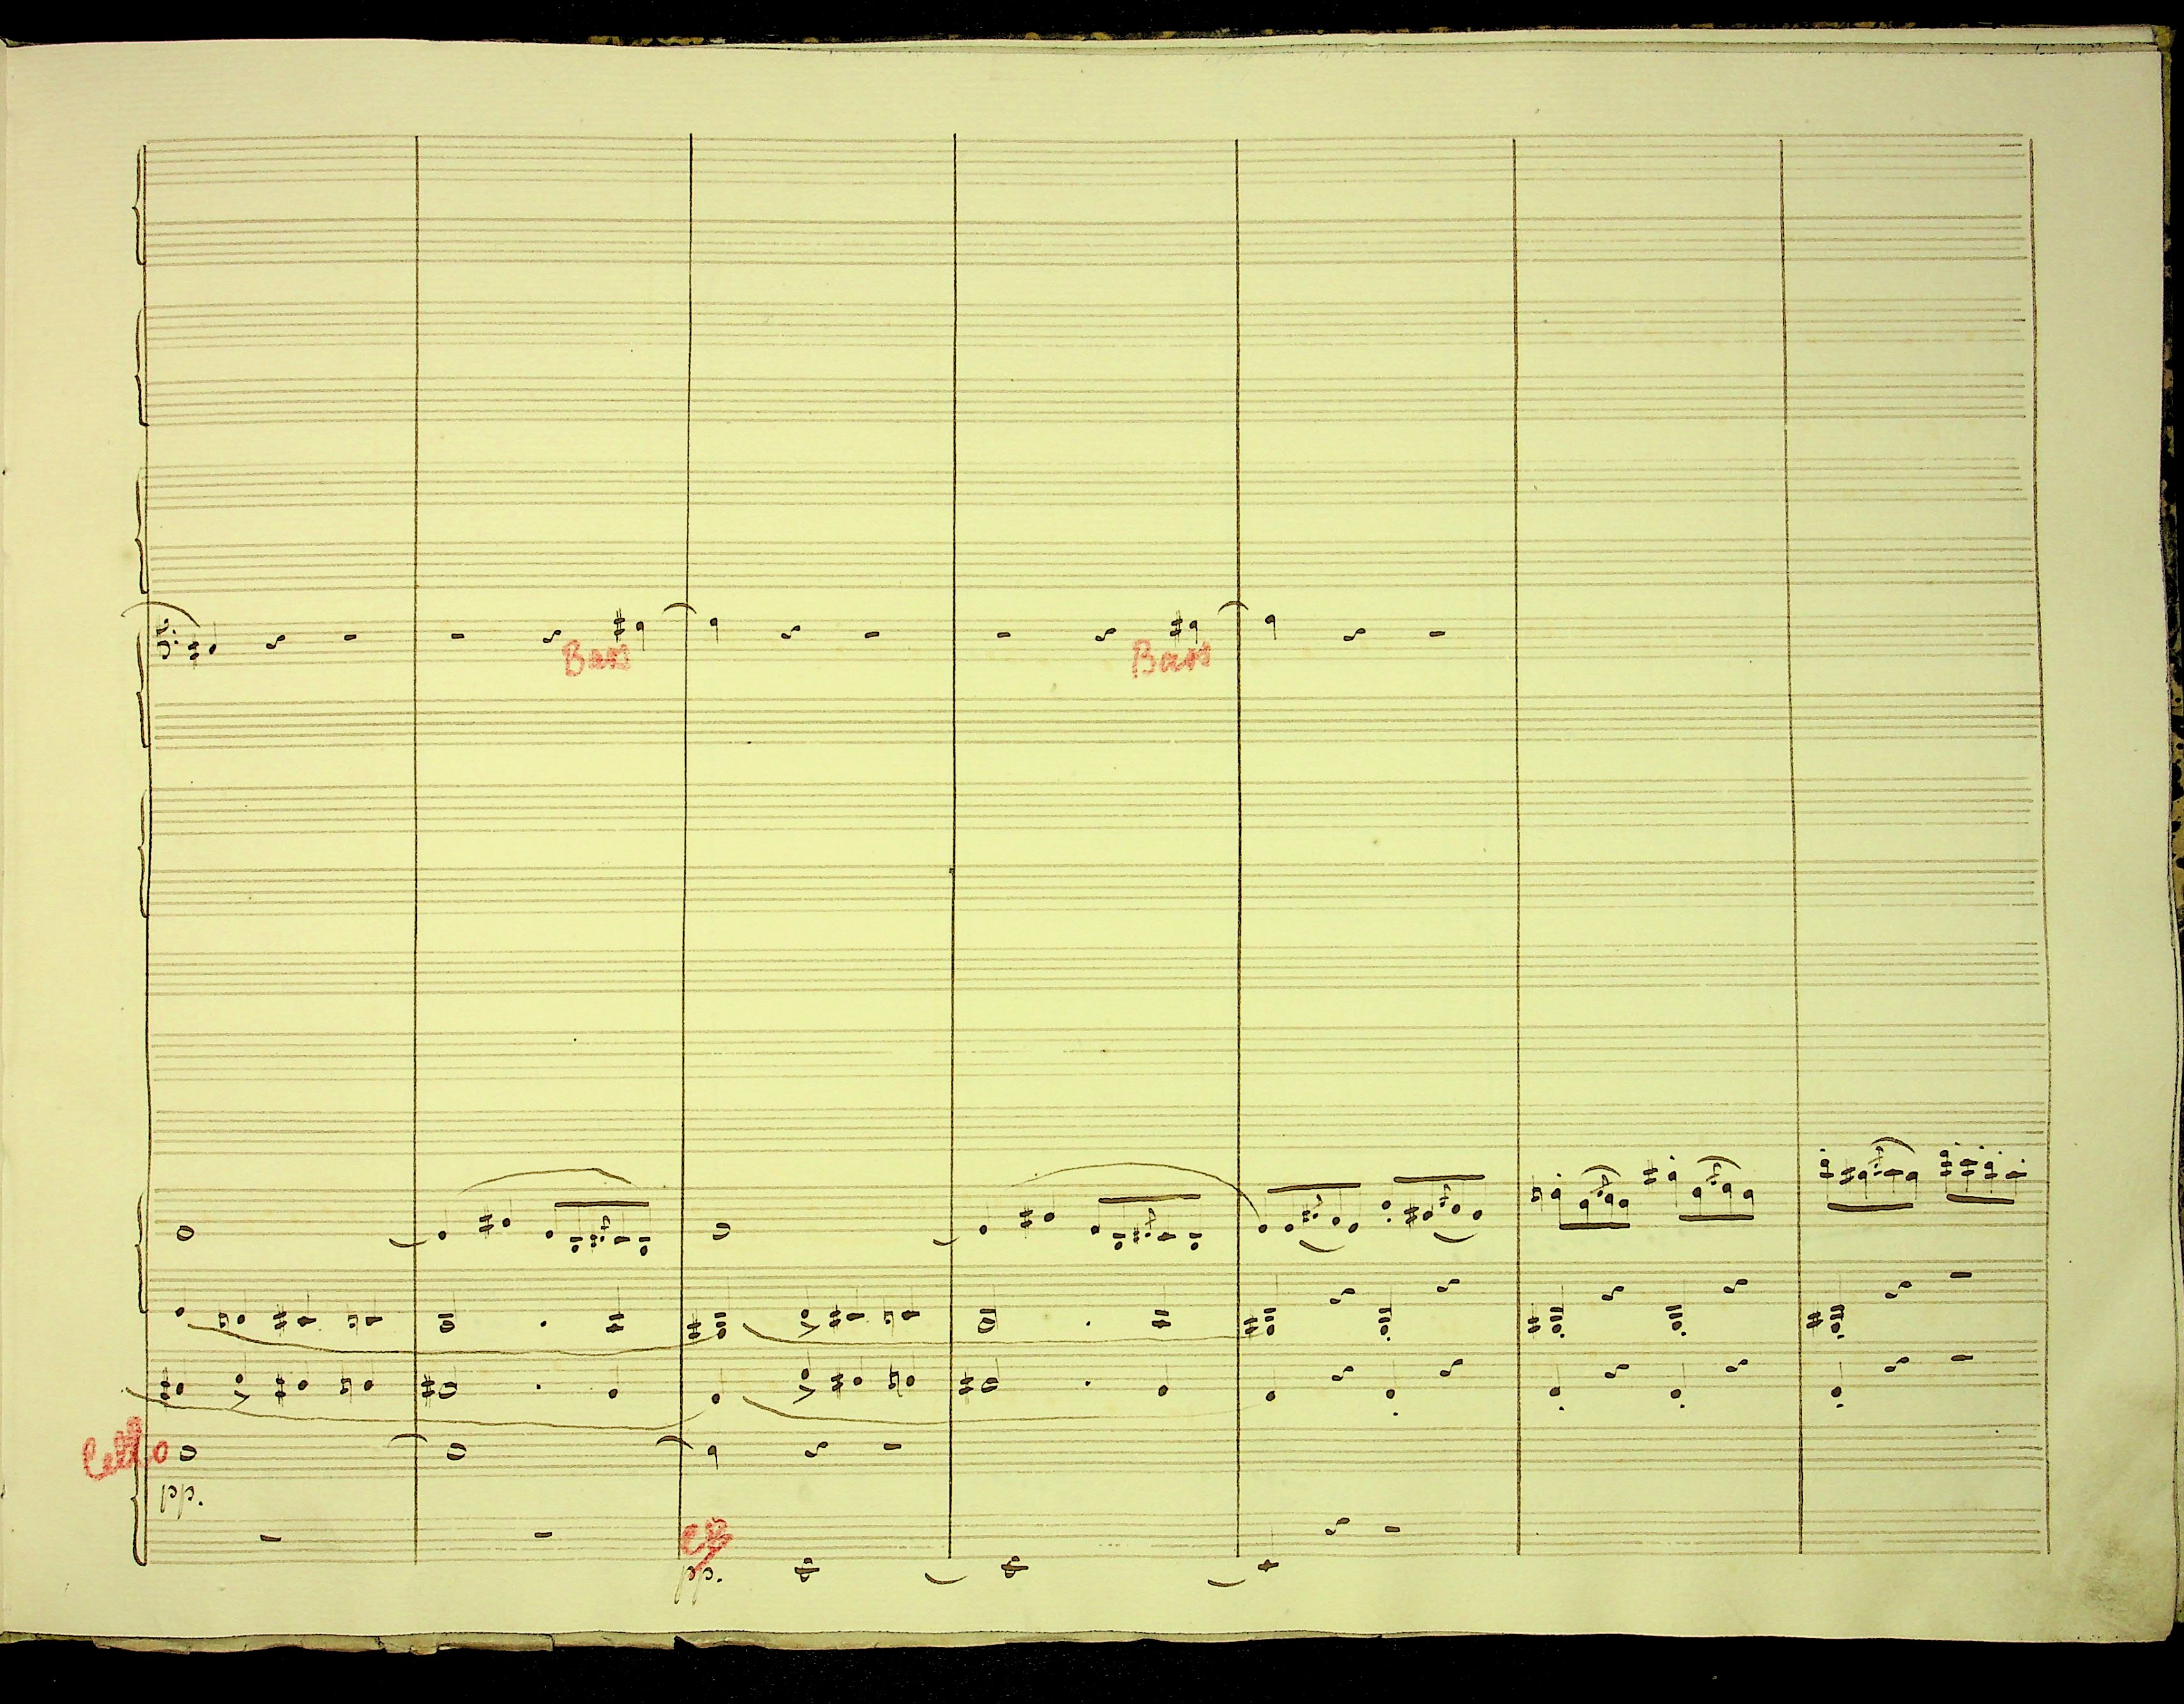 Bass
Bass
Cello
pp.
CB
pp.